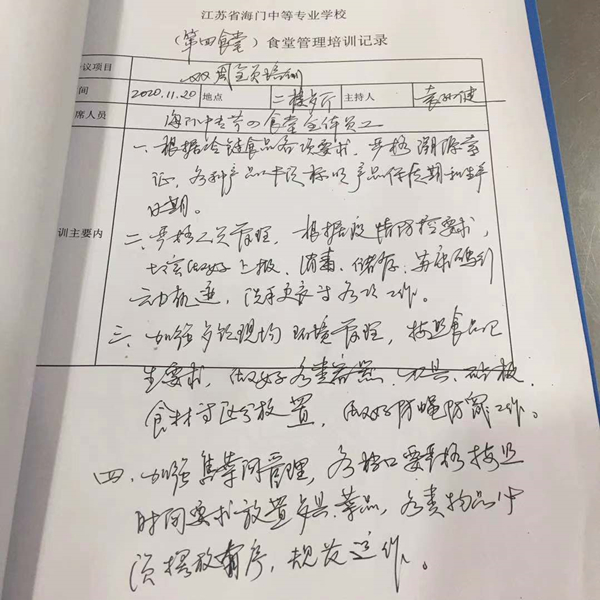 江苏省海门中等专业学校
(第四食堂)食堂管理培训记录
议项目 双周全员培训
间 2020.11.20 地点 二楼歺厅 主持人 袁 健
席人员 海门中专第四食堂全体员工
训主要内
一、根据冷链食品各项要求,严格溯源索
证,各种产品必须标明产品保质期和生产
日期。
二、严格人员管理,根据疫情防控要求,
切实做好上报、消毒、储存、苏康码行
动轨迹,洗手更衣等各项工作。
三、加强歺饮现场环境管理,按照食品卫
生要求,做好各类容器、刀具、砧板、
食材等区分放置,做好防蝇防鼠工作。
四、加强售菜间管理,各档口要严格按照
时间要求放置歺具、菜品,各类物品必
须摆放有序,规范运作。